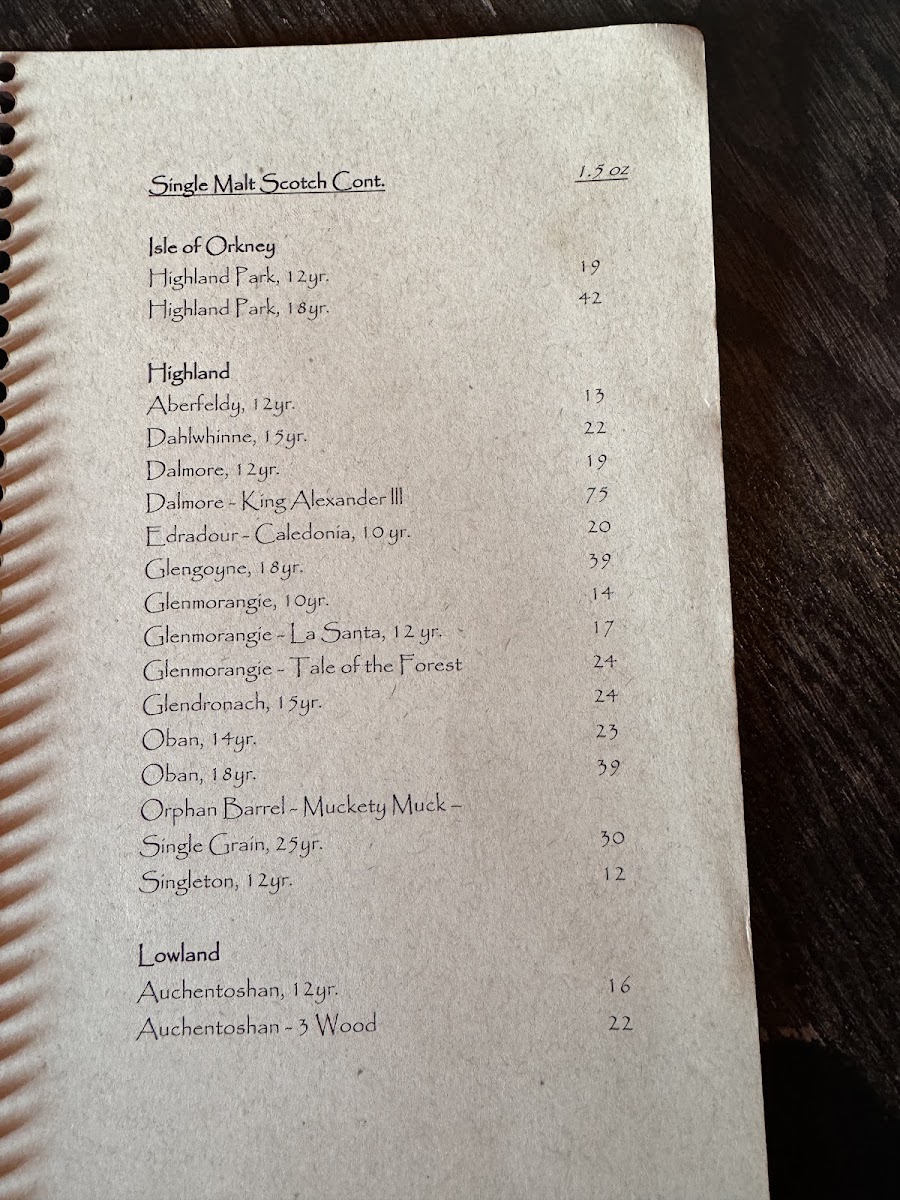 Single Malt Scotch Cont. 1.5 oz
Isle of Orkney
Highland Park, 12yr. 19
Highland Park, 18yr. 42
Highland
Aberfeldy, 12yr. 13
Dahlwhinne, 15yr. 22
Dalmore, 12yr. 19
Dalmore - King Alexander III 75
Edradour - Caledonia, 10 yr. 20
Glengoyne, 18yr. 39
Glenmorangie, 10yr. 14
Glenmorangie - La Santa, 12 yr. 17
Glenmorangie - Tale of the Forest 24
Glendronach, 15yr. 24
Oban, 14yr. 23
Oban, 18yr. 39
Orphan Barrel - Muckety Muck –
Single Grain, 25yr. 30
Singleton, 12yr. 12
Lowland
Auchentoshan, 12yr. 16
Auchentoshan - 3 Wood 22